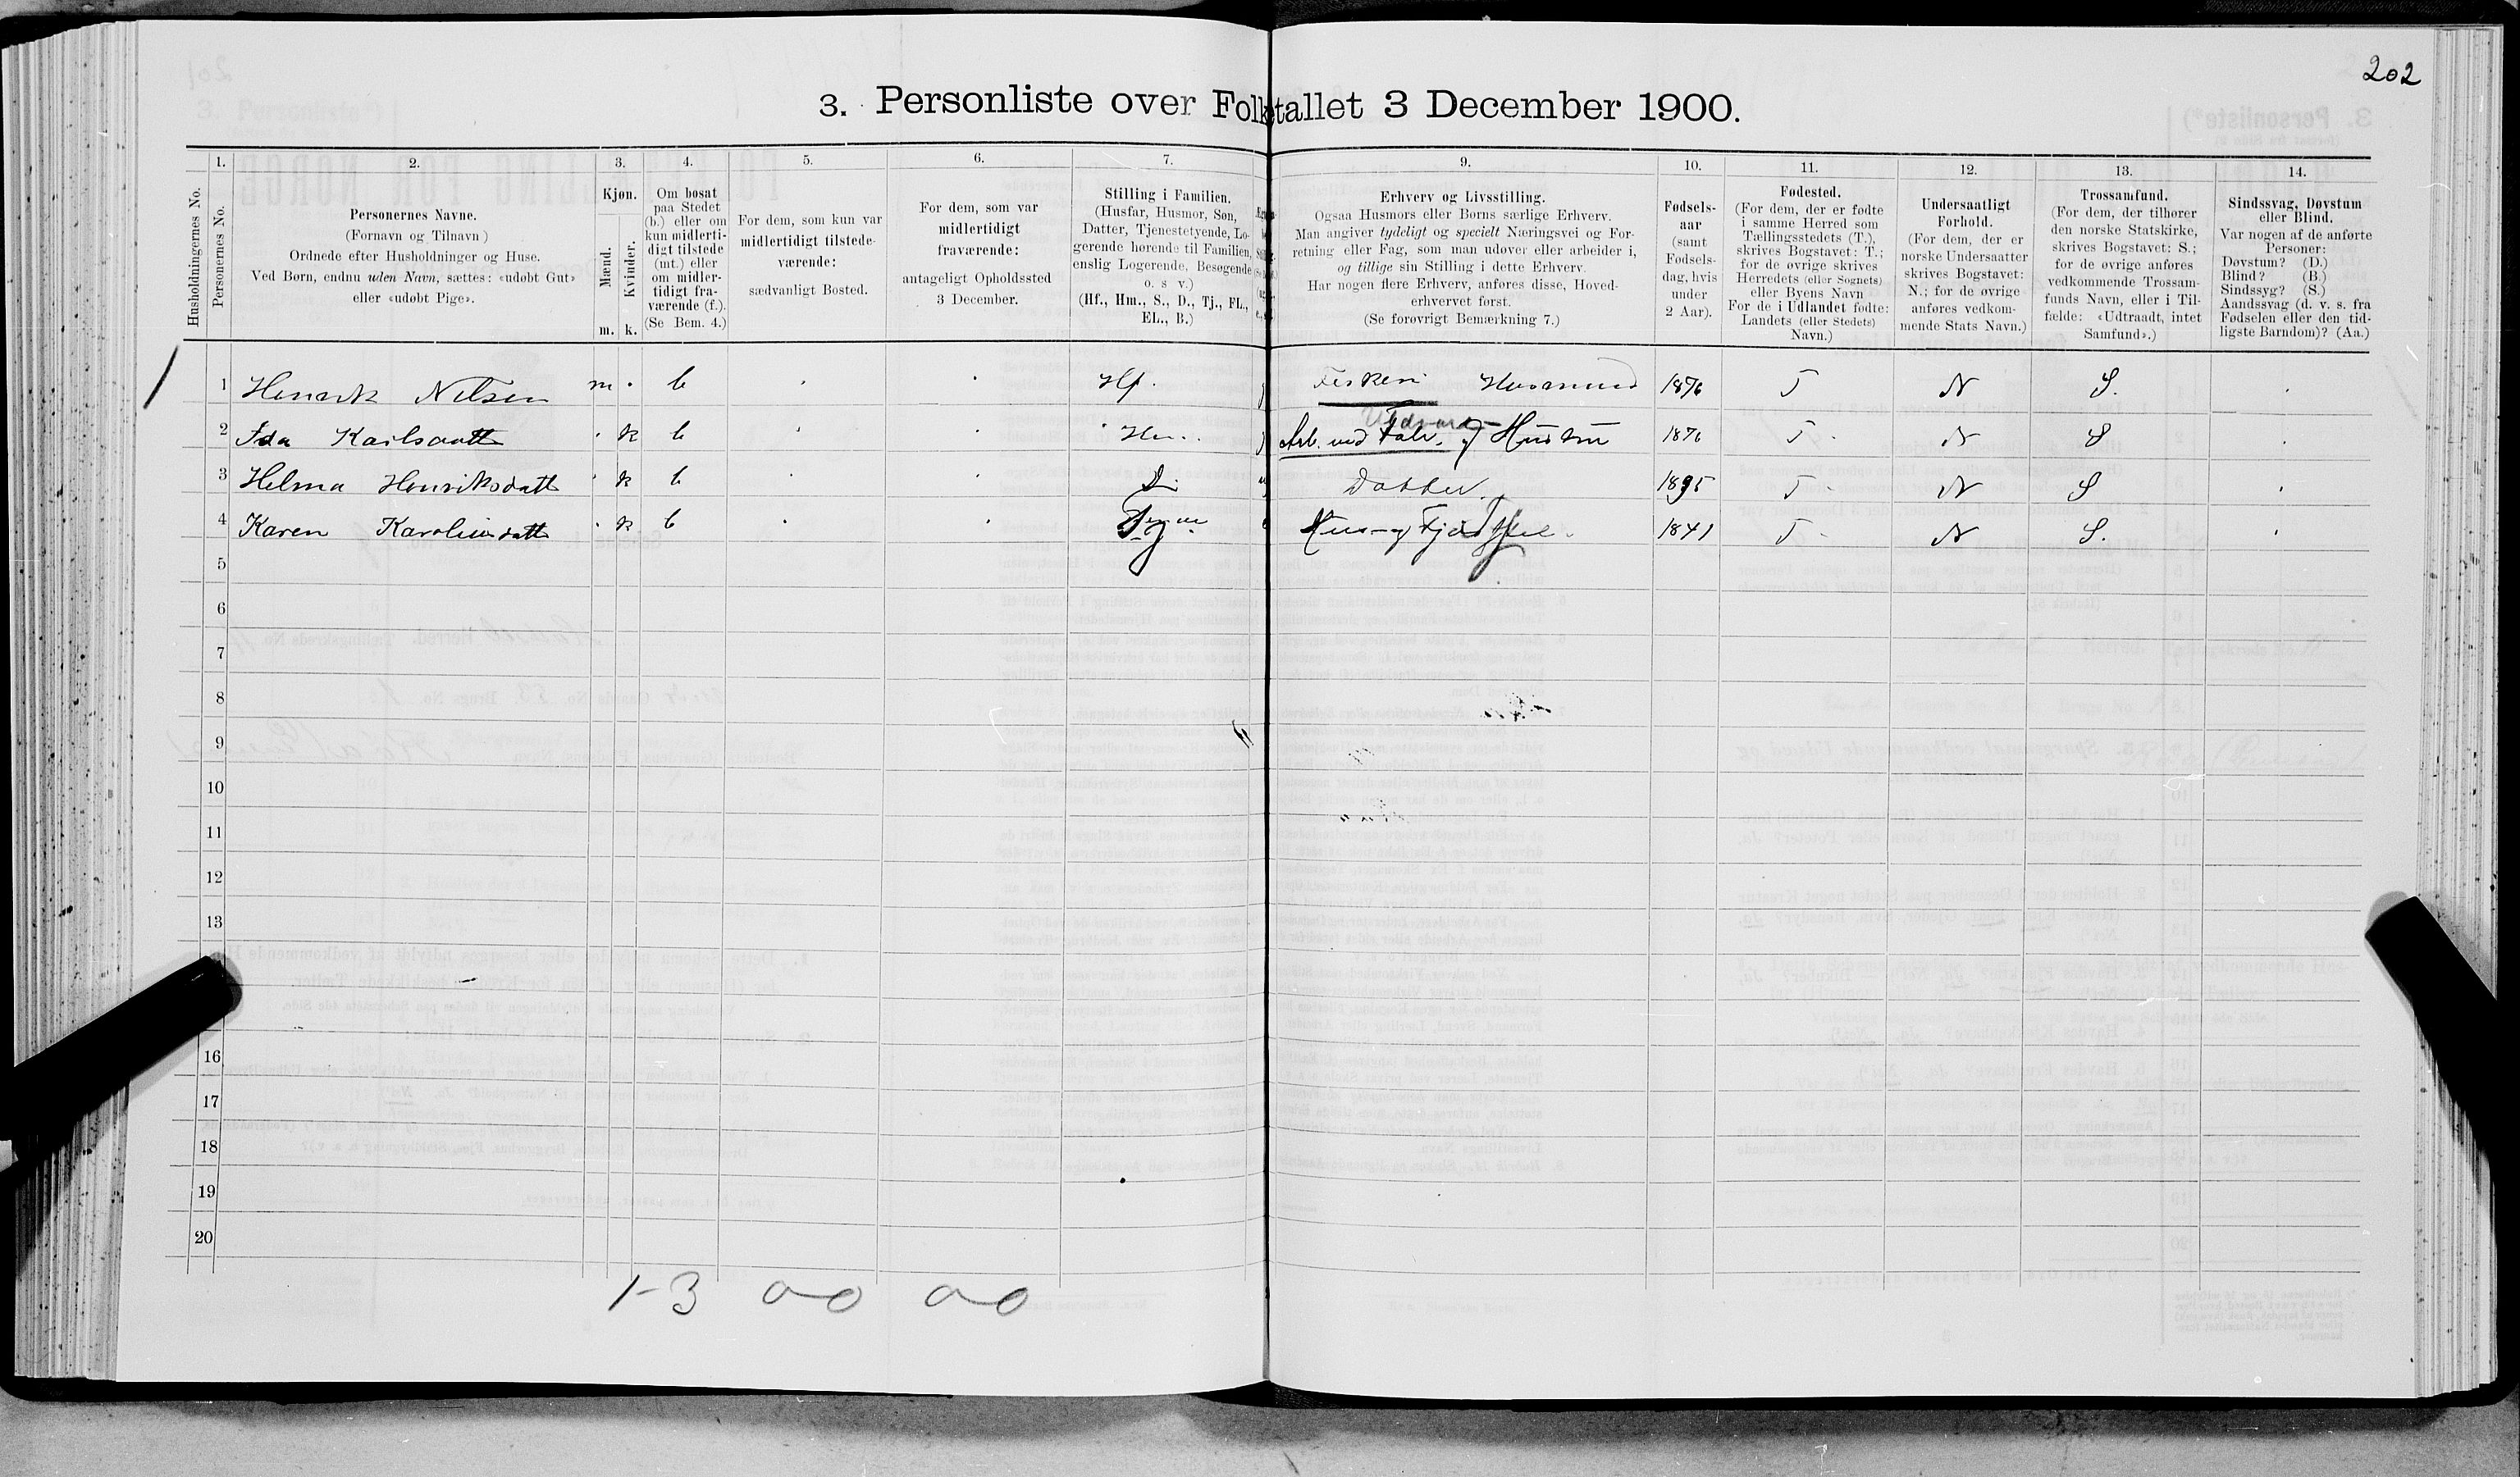 202
3. Personliste over Folketallet 3 December 1900.
1. 2. 3. 4. 5. 6. 7. 9. 10. 11. 12. 13. 14.
Husholdningernes No.
Personernes No.
Personernes Navne.
(Fornavn og Tilnavn)
Ordnede efter Husholdninger og Huse.
Ved Børn, endnu uden Navn, sættes: «udøbt Gut»
eller «udøbt Pige».
Kjøn.
Mænd.
Kvinder.
m. k.
Om bosat
paa Stedet
(b.) eller om
kun midlerti-
digt tilstede
(mt.) eller
om midler-
tidigt fra-
værende (f.).
(Se Bem. 4.)
For dem, som kun var
midlertidigt tilstede-
værende:
sædvanligt Bosted.
For dem, som var
midlertidigt
fraværende:
antageligt Opholdssted
3 December.
Stilling i Familien.
(Husfar, Husmor, Søn,
Datter, Tjenestetyende, Lo-
gerende hørende til Familien,
enslig Logerende, Besøgende
o. s v.)
(Hf., Hm., S., D., Tj., FL.,
EL., B.)
Erhverv og Livsstilling.
Ogsaa Husmors eller Børns særlige Erhverv.
Man angiver tydeligt og specielt Næringsvei og For-
retning eller Fag, som man udøver eller arbeider i,
og tillige sin Stilling i dette Erhverv.
Har nogen flere Erhverv, anføres disse, Hoved-
erhvervet først.
(Se forøvrigt Bemærkning 7.)
Fødsels-
aar
(samt
Fødsels-
dag, hvis
under
2 Aar).
Fødested.
(For dem, der er fødte
i samme Herred som
Tællingsstedets (T.),
skrives Bogstavet: T.;
for de øvrige skrives
Herredets (eller Sognets)
eller Byens Navn
For de i Udlandet fødte:
Landets (eller Stedets)
Navn.)
Undersaatligt
Forhold.
(For dem, der er
norske Undersaatter
skrives Bogstavet:
N.; for de øvrige
anføres vedkom-
mende Stats Navn.)
Trossamfund.
(For dem, der tilhører
den norske Statskirke,
skrives Bogstavet: S.;
for de øvrige anføres
vedkommende Trossam-
funds Navn, eller i Til-
fælde: «Udtraadt, intet
Samfund».)
Sindssvag, Døvstum
eller Blind.
Var nogen af de anførte
Personer:
Døvstum? (D.)
Blind? (B.)
Sindssyg? (S.)
Aandssvag (d. v. s. fra
Fødselen eller den tid-
ligste Barndom)? (Aa.)
1 Henrik Nilsen m b Hf. Fiskeri Husmand 1876 T N S.
2 Ida Karlsdatt k b Hm. Arb. ved Fabr. og Hustru 1876 T N S
3 Helma Henriksdatt k b D. Datter. 1895 T N S
4 Karen Karolius datt k b Tj Hus og Fjøsstel 1841 T N S.
5
6
7
8
9
10
11
12
13
16
17
18
19
20
1-3 0-0 0-0